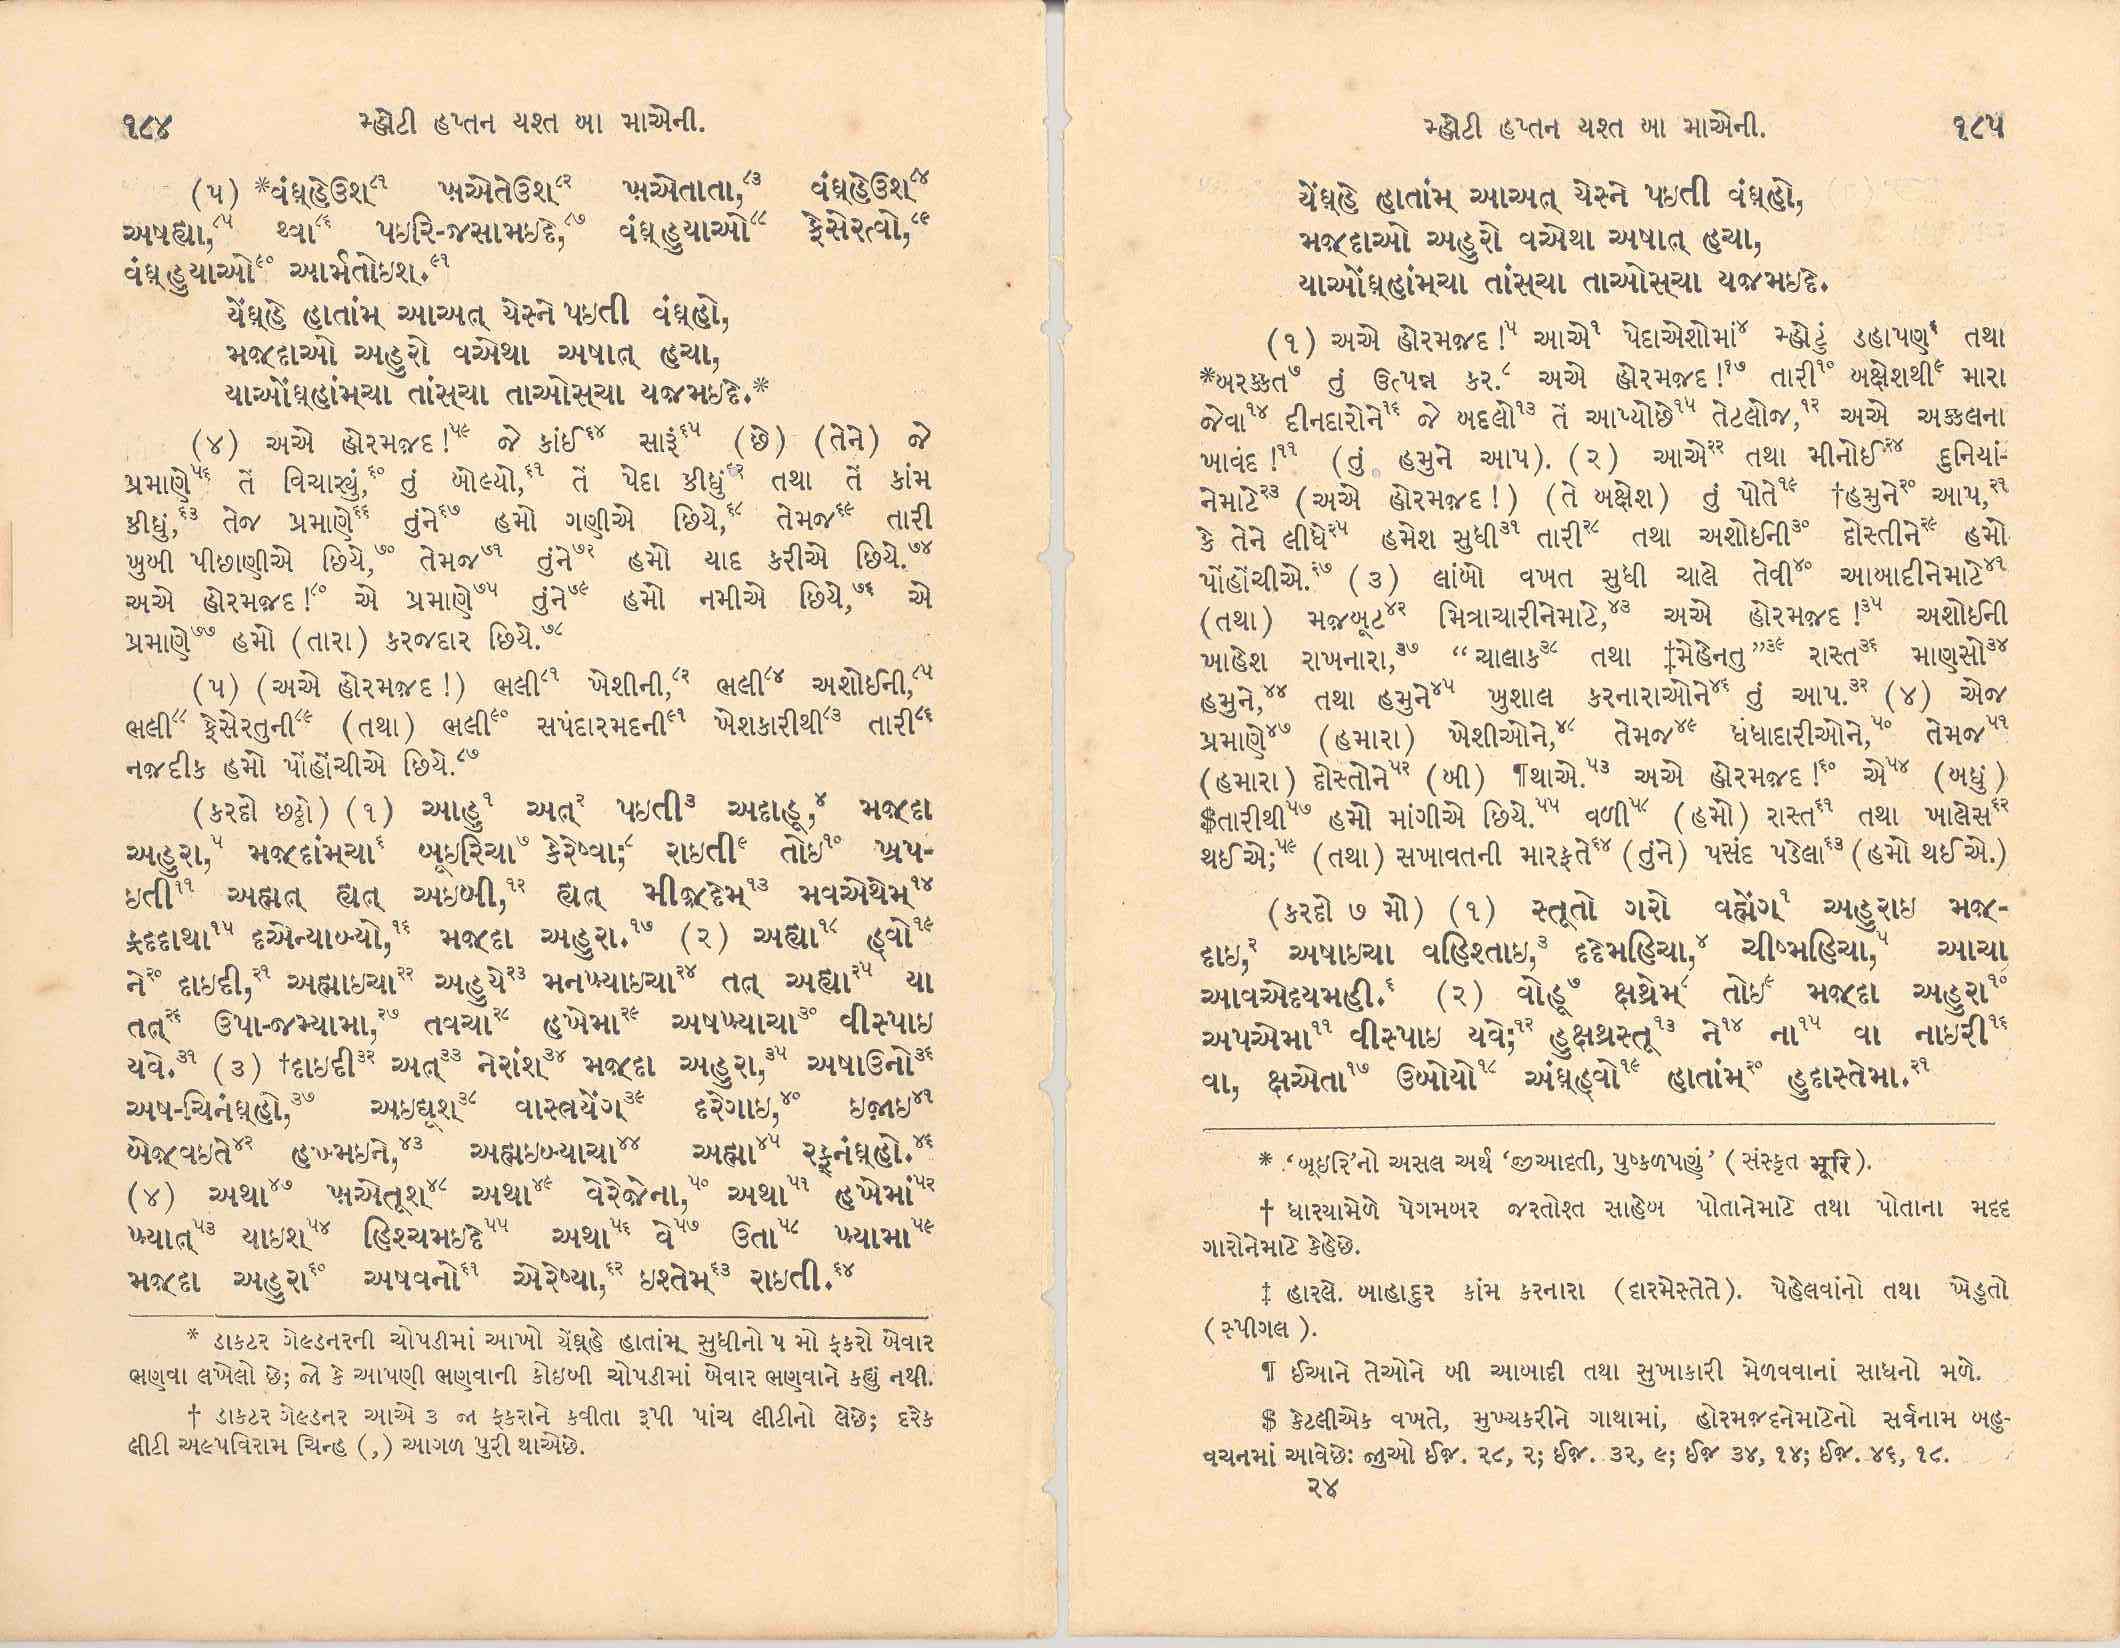 ૧૮૪ મ્હોટી હપ્તન યશ્ત બા માએની.
(૫) *વંઘ્હેઉશ્૮૧ ખ઼્અએતેઉશ્૮૨ ખ઼્અએતાતા,૮૩ વંઘ્હેઉશ્૮૪
અષહ્યા,૮૫ થ્વા૮૬ પઇરિ-જસામઇદે,૮૭ વંઘ્હુયાઓ૮૮ ફ઼્સેરત્વો,૮૯
વંઘ્હુયાઓ૯૦ આર્મતોઇશ.૯૧
યેંઘ્હે હાતાંમ્ આઅત્ યેસ્ને પઇતી વંઘ્હો,
મજ઼્દાઓ અહુરો વએથા અષાત્ હચા,
યાઓંઘ્હાંમ્ચા તાંસ્ચા તાઓસ્ચા યજ઼મઇદે.*
(૪) અએ હોરમજ઼્દ!૫૯ જે કાંઈ૬૪ સારૂં૬૫ (છે) (તેને) જે
પ્રમાણે૫૬ તેં વિચાર્યું,૬૦ તું બોલ્યો,૬૧ તેં પેદા કીધું૬૨ તથા તેં કાંમ
કીધું,૬૩ તેજ પ્રમાણે૬૬ તુંને૬૭ હમો ગણીએ છિયે,૬૮ તેમજ૬૯ તારી
ખુબી પીછાણીએ છિયે,૭૦ તેમજ૭૧ તુંને૭૨ હમો યાદ કરીએ છિયે.૭૪
અએ હોરમજ઼્દ!૮૦ એ પ્રમાણે૭૫ તુંને૭૯ હમો નમીએ છિયે,૭૬ એ
પ્રમાણે૭૭ હમો (તારા) કરજદાર છિયે.૭૮
(૫) (અએ હોરમજ઼્દ!) ભલી૮૧ ખેશીની,૮૨ ભલી૮૪ અશોઈની,૮૫
ભલી૮૮ ફ઼્સેરતુની૮૯ (તથા) ભલી૯૦ સપંદારમદની૯૧ ખેશકારીથી૮૩ તારી૮૬
નજદીક હમો પોંહોંચીએ છિયે.૮૭
(કરદો છઠ્ઠો) (૧) આહુ૧ અત્૨ પઇતી૩ અદાહૂ,૪ મજ઼્દા
અહુરા,૫ મજ઼્દાંમ્ચા૬ બૂઇરિચા૭ કેરેષ્વા;૮ રાઇતી૯ તોઇ૧૦ ખ્રપ-
ઇતી૧૧ અહ્માત્ હ્યત્ અઇબી,૧૨ હ્યત્ મીજ઼્દેમ્૧૩ મવએથેમ્૧૪
ફ્રદદાથા૧૫ દએન્યાબ્યો,૧૬ મજ઼્દા અહુરા.૧૭ (૨) અહ્યા૧૮ હ્વો૧૯
ને૨૦ દાઇદી,૨૧ અહ્માઇચા૨૨ અહુયે૨૩ મનખ઼્યાઇચા૨૪ તત્ અહ્યા૨૫ યા
તત્૨૬ ઉપા-જમ્યામા,૨૭ તવચા૨૮ હખેમા૨૯ અષખ઼્યાચા૩૦ વીસ્પાઇ
યવે.૩૧ (૩) †દાઇદી૩૨ અત્૩૩ નેરાંશ્૩૪ મજ઼્દા અહુરા,૩૫ અષાઉનો૩૬
અષ-ચિનંઘ્હો,૩૭ અઇદ્યૂશ્૩૮ વાસ્ત્રયેંગ્૩૯ દરેગાઇ,૪૦ ઇજ઼ાઇ૪૧
બેજ઼્વઇતે૪૨ હખ્મઇને,૪૩ અહ્મઇબ્યાચા૪૪ અહ્મા૪૫ રફ઼્નંઘ્હો.૪૬
(૪) અથા૪૭ ખ઼્અએતૂશ્૪૮ અથા૪૯ વેરેજ઼ેના,૫૦ અથા૫૧ હખેમાં૫૨
ખ઼્યાત્૫૩ યાઇશ્૫૪ હિશ્ચમઇદે૫૫ અથા૫૬ વે૫૭ ઉતા૫૮ ખ઼્યામા૫૯
મજ઼્દા અહુરા૬૦ અષવનો૬૧ એરેષ્યા,૬૨ ઇશ્તેમ્૬૩ રાઇતી.૬૪
* ડાકટર ગેલ્ડનરની ચોપડીમાં આખો યેંઘ્હે હાતાંમ્ સુધીનો ૫ મો ફકરો બેવાર
ભણવા લખેલો છે; જો કે આપણી ભણવાની કોઇબી ચોપડીમાં બેવાર ભણવાને કહ્યું નથી.
† ડાકટર ગેલ્ડનર આએ ૩ જા ફકરાને કવીતા રૂપી પાંચ લીટીનો લેછે; દરેક
લીટી અલ્પવિરામ ચિન્હ (,) આગળ પુરી થાએછે.
મ્હોટી હપ્તન યશ્ત બા માએની. ૧૮૫
યેંઘ્હે હાતાંમ્ આઅત્ યેસ્ને પઇતી વંઘ્હો,
મજ઼્દાઓ અહુરો વએથા અષાત્ હચા,
યાઓંઘ્હાંમ્ચા તાંસ્ચા તાઓસ્ચા યજ઼મઇદે.
(૧) અએ હોરમજ઼્દ!૫ આએ૧ પેદાએશોમાં૪ મ્હોટું ડહાપણ૬ તથા
*બરક્કત૭ તું ઉત્પન્ન કર.૮ અએ હોરમજ઼્દ!૧૭ તારી૧૦ બક્ષેશથી૯ મારા
જેવા૧૪ દીનદારોને૧૬ જે બદલો૧૩ તેં આપ્યોછે૧૫ તેટલોજ,૧૨ અએ અક્કલના
ખાવંદ!૧૧ (તું હમુને આપ). (૨) આએ૨૨ તથા મીનોઈ૨૪ દુનિયાં-
નેમાટે૨૩ (અએ હોરમજ઼્દ!) (તે બક્ષેશ) તું પોતે૧૯ †હમુને૨૦ આપ,૨૧
કે તેને લીધે૨૫ હમેશ સુધી૩૧ તારી૨૮ તથા અશોઈની૩૦ દોસ્તીને૨૯ હમો
પોંહોંચીએ.૨૭ (૩) લાંબો વખત સુધી ચાલે તેવી૪૦ આબાદીનેમાટે૪૧
(તથા) મજબૂટ૪૨ મિત્રાચારીનેમાટે,૪૩ અએ હોરમજ઼્દ!૩૫ અશોઈની
ખાહેશ રાખનારા,૩૭ “ચાલાક૩૮ તથા ‡મેહેનતુ”૩૯ રાસ્ત૩૬ માણસો૩૪
હમુને,૪૪ તથા હમુને૪૫ ખુશાલ કરનારાઓને૪૬ તું આપ.૩૨ (૪) એજ
પ્રમાણે૪૭ (હમારા) ખેશીઓને,૪૮ તેમજ૪૯ ધંધાદારીઓને,૫૦ તેમજ૫૧
(હમારા) દોસ્તોને૫૨ (બી) ¶થાએ.૫૩ અએ હોરમજ઼્દ!૬૦ એ૫૪ (બધું)
$તારીથી૫૭ હમો માંગીએ છિયે.૫૫ વળી૫૮ (હમો) રાસ્ત૬૧ તથા ખાલેસ૬૨
થઈએ;૫૯ (તથા) સખાવતની મારફતે૬૪ (તુંને) પસંદ પડેલા૬૩ (હમો થઈએ.)
(કરદો ૭ મો) (૧) સ્તૂતો ગરો વહ્મેંગ્૧ અહુરાઇ મજ઼્-
દાઇ,૨ અષાઇચા વહિશ્તાઇ,૩ દદેમહિચા,૪ ચીષ્મહિચા,૫ આચા
આવએદયમહી.૬ (૨) વોહૂ૭ ક્ષથ્રેમ્૮ તોઇ૯ મજ઼્દા અહુરા૧૦
અપએમા૧૧ વીસ્પાઇ યવે;૧૨ હુક્ષથ્રસ્તૂ૧૩ ને૧૪ ના૧૫ વા નાઇરી૧૬
વા, ક્ષએતા૧૭ ઉબોયો૧૮ અંઘ્હ્વો૧૯ હાતાંમ્૨૦ હુદાસ્તેમા.૨૧
* ‘બૂઇરિ’નો અસલ અર્થ ‘જીઆદતી, પુષ્કળપણું’ (સંસ્કૃત भूरि).
† ધારયામેળે પેગમબર જરતોશ્ત સાહેબ પોતાનેમાટે તથા પોતાના મદદ
ગારોનેમાટે કેહેછે.
‡ હારલે. બાહાદુર કાંમ કરનારા (દારમેસ્તેતે). પેહેલવાંનો તથા ખેડુતો
(સ્પીગલ).
¶ ઈઆને તેઓને બી આબાદી તથા સુખાકારી મેળવવાનાં સાધનો મળે.
$ કેટલીએક વખતે, મુખ્યકરીને ગાથામાં, હોરમજ઼્દનેમાટેનો સર્વનામ બહુ-
વચનમાં આવેછેઃ જુઓ ઈજ઼. ૨૮, ૨; ઈજ઼. ૩૨, ૯; ઈજ઼ ૩૪, ૧૪; ઈજ઼. ૪૬, ૧૮.
૨૪